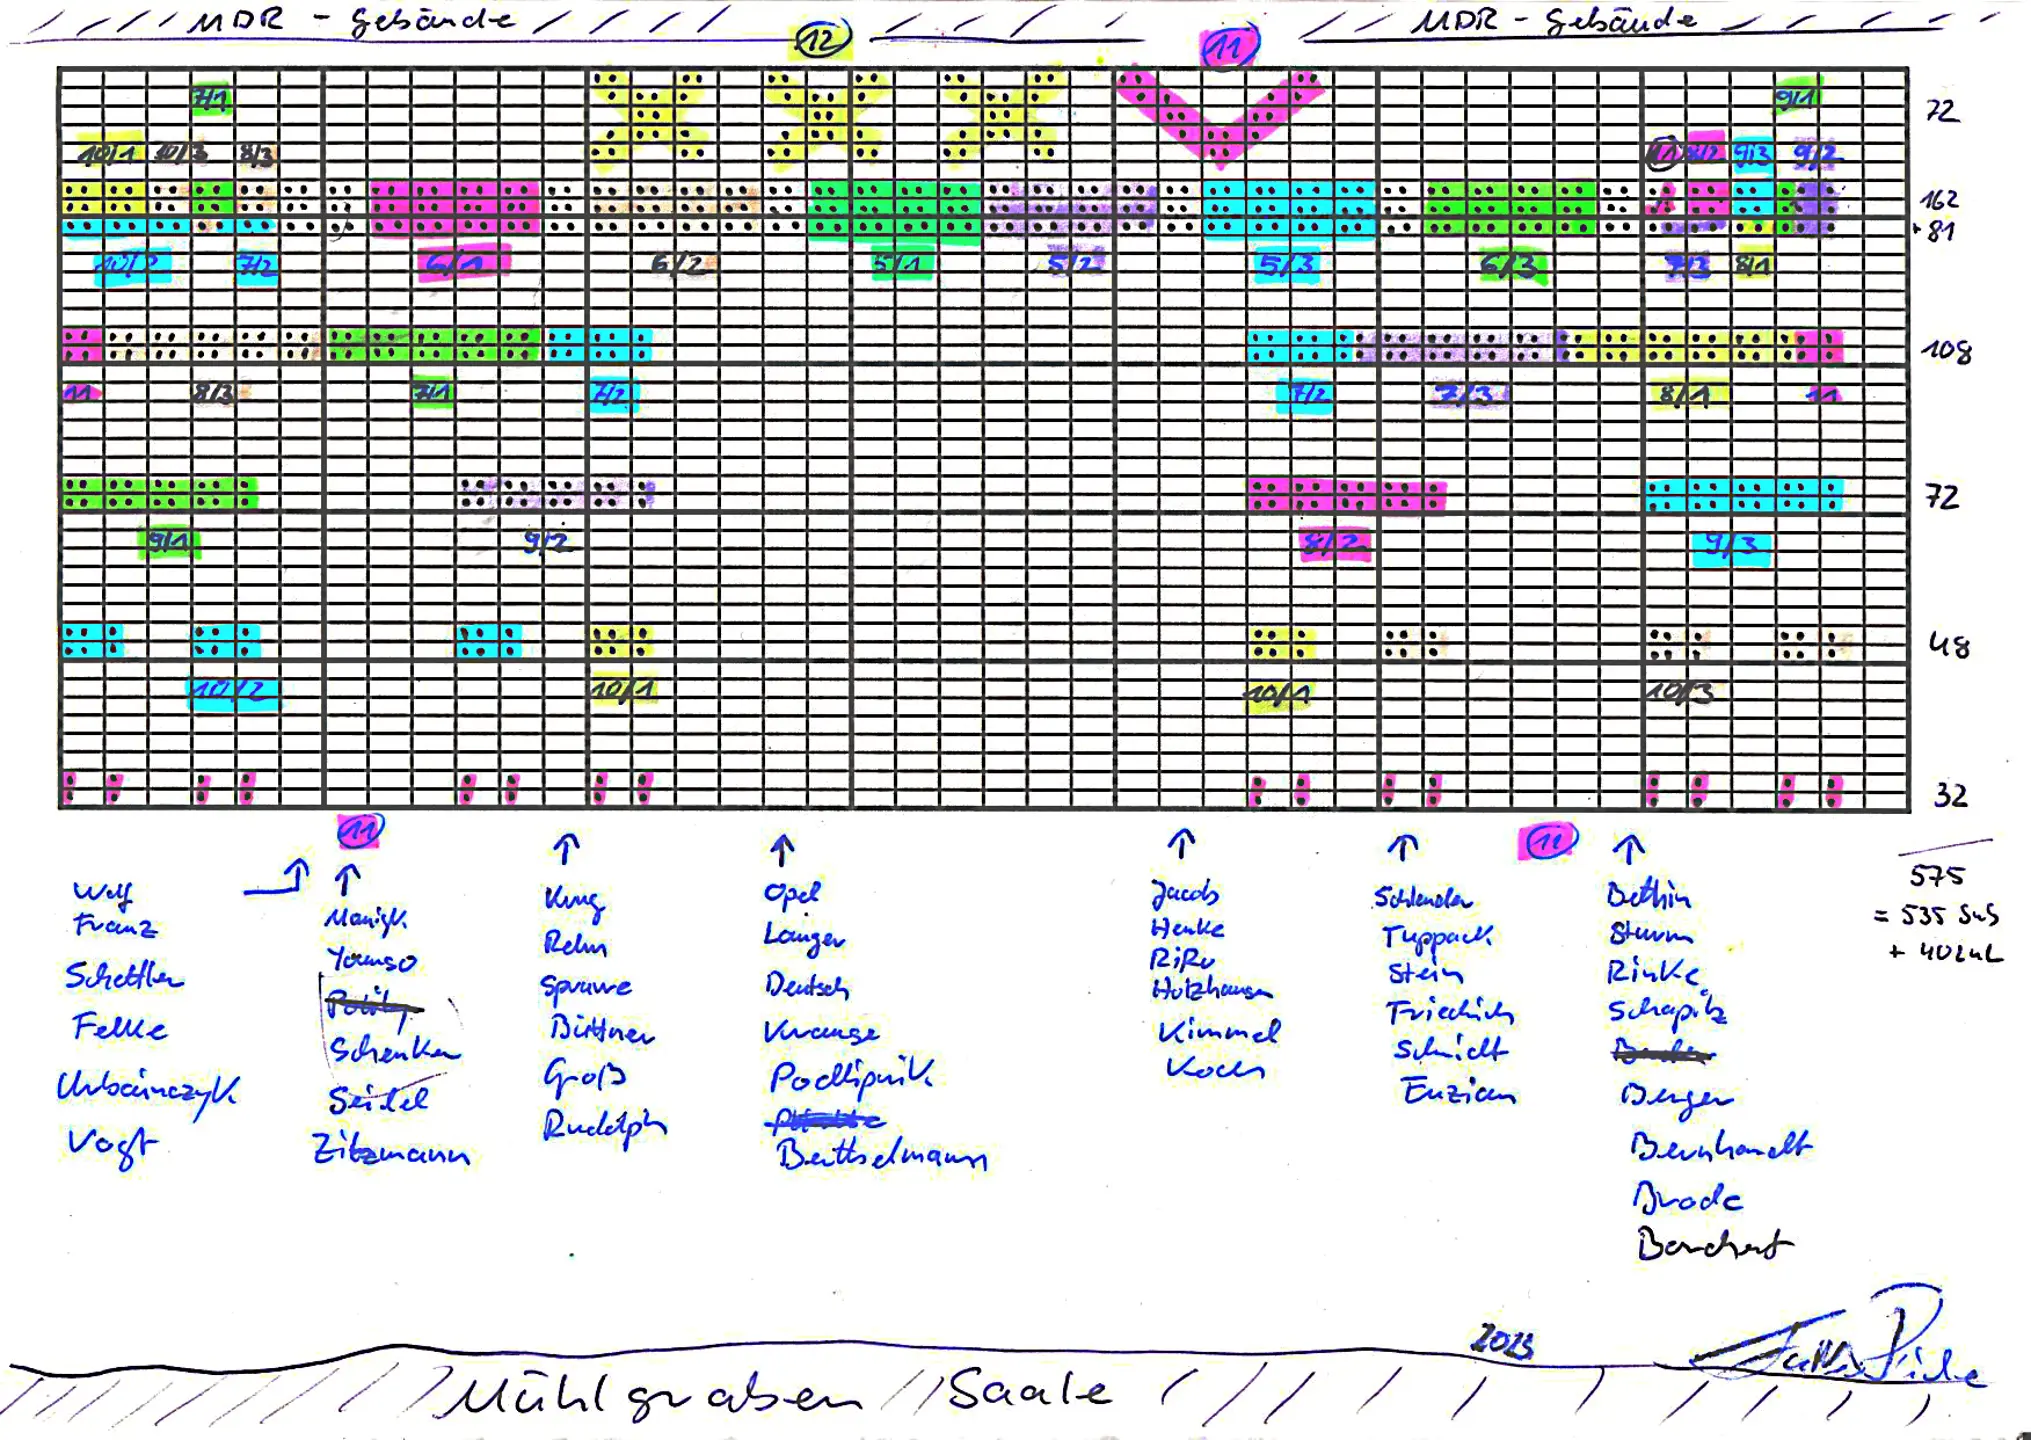 MDR - Gebäude
MDR - Gebäude
12
11
7/1
9/1
72
10/1 10/3 8/3
11 8/2 9/3 9/2
162
+ 81
10/2 7/2 6/1 6/2 5/1 5/2 5/3 6/3 7/3 8/1
108
11 8/3 7/1 7/2 7/2 7/3 8/1 11
72
9/1 9/2 8/2 9/3
48
10/2 10/1 10/1 10/3
32
11
11
575
= 535 SuS
+ 40
Wolf
Franz
Schettler
Felke
Urbainczyk
Vogt
Youngo
Schenker
Seidel
Zitzmann
Krug
Rehn
Büttner
Groß
Rudolph
Opel
Langer
Deutsch
Krause
Podlipnik
Berthelmann
Jacob
Henke
RiRo
Holzhausen
Kimmel
Koch
Tuppack
Stein
Friedrich
Schmidt
Enzian
Bethin
Sturm
Rinke
Berger
Bernhardt
Brode
Borchert
2023
Mühlgraben / Saale